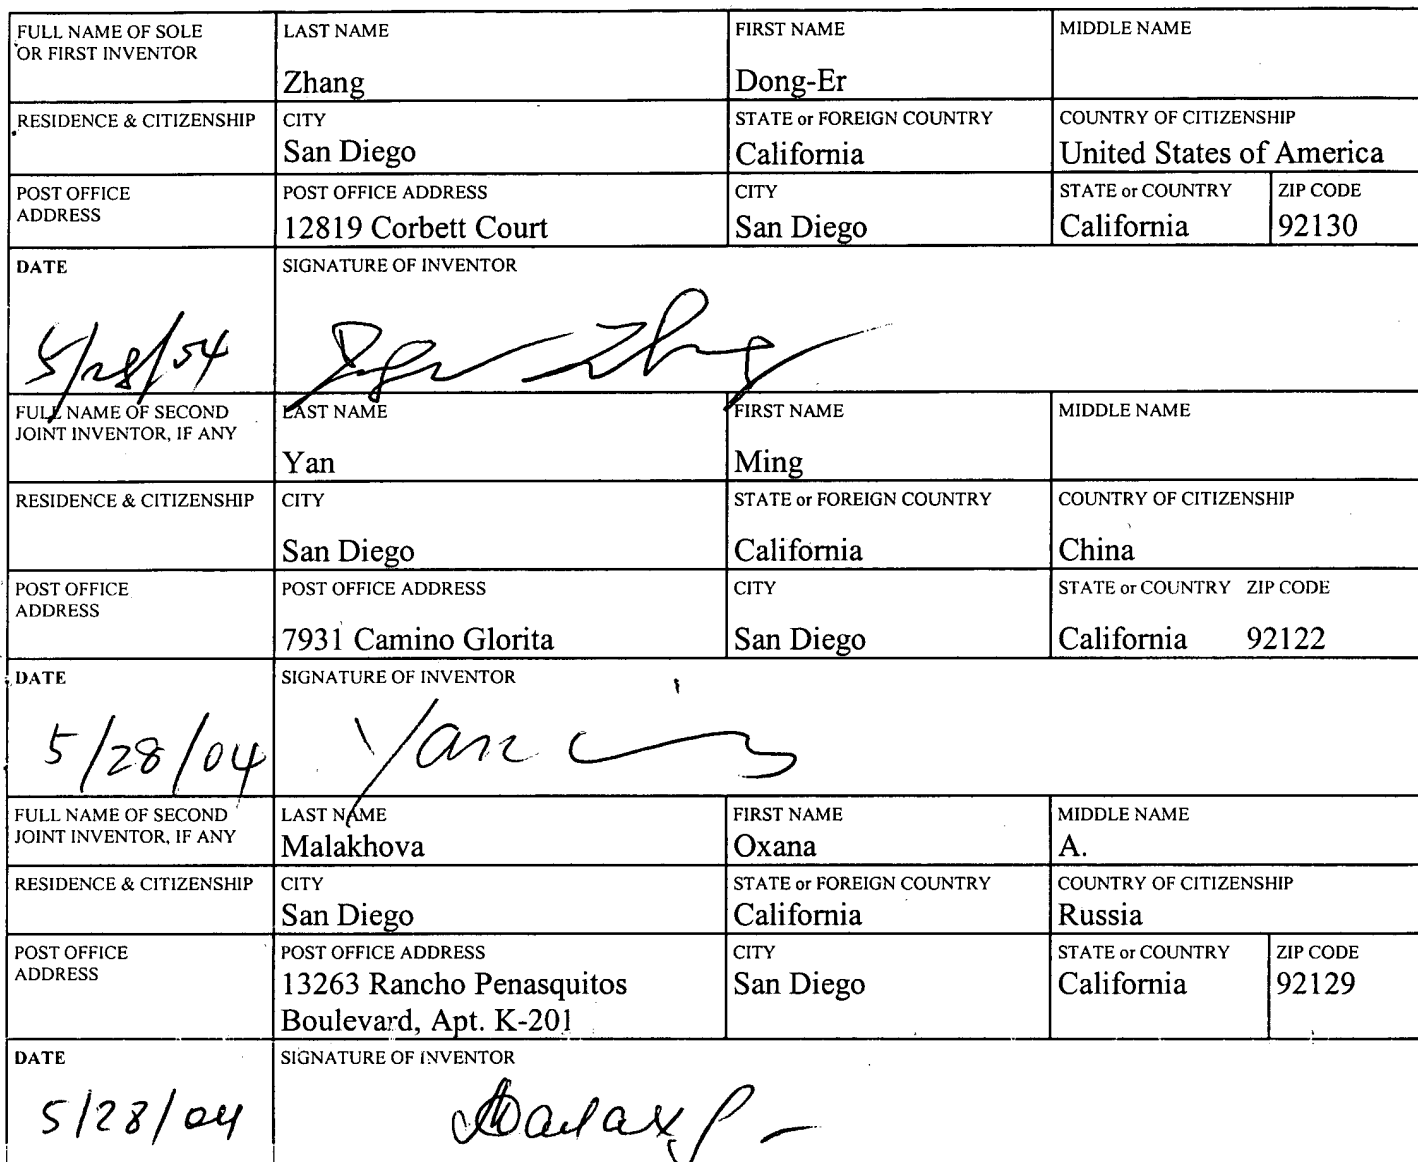 FULL NAME OF SOLE OR FIRST INVENTOR
LAST NAME
Zhang
FIRST NAME
Dong-Er
MIDDLE NAME
RESIDENCE & CITIZENSHIP
CITY
San Diego
STATE or FOREIGN COUNTRY
California
COUNTRY OF CITIZENSHIP
United States of America
POST OFFICE ADDRESS
POST OFFICE ADDRESS
12819 Corbett Court
CITY
San Diego
STATE or COUNTRY
California
ZIP CODE
92130
DATE
SIGNATURE OF INVENTOR
FULL NAME OF SECOND
JOINT INVENTOR, IF ANY
LAST NAME
Yan
FIRST NAME
Ming
MIDDLE NAME
RESIDENCE & CITIZENSHIP
CITY
San Diego
STATE or FOREIGN COUNTRY
California
COUNTRY OF CITIZENSHIP
China
POST OFFICE
ADDRESS
POST OFFICE ADDRESS
7931 Camino Glorita
CITY
San Diego
STATE or COUNTRY ZIP CODE
California 92122
DATE
5/28/04
SIGNATURE OF INVENTOR
Yan
FULL NAME OF SECOND
JOINT INVENTOR, IF ANY
LAST NAME
Malakhova
FIRST NAME
Oxana
MIDDLE NAME
A.
RESIDENCE & CITIZENSHIP
CITY
San Diego
STATE or FOREIGN COUNTRY
California
COUNTRY OF CITIZENSHIP
Russia
POST OFFICE
ADDRESS
POST OFFICE ADDRESS
13263 Rancho Penasquitos
Boulevard, Apt. K-201
CITY
San Diego
STATE or COUNTRY
California
ZIP CODE
92129
DATE
5/28/04
SIGNATURE OF INVENTOR